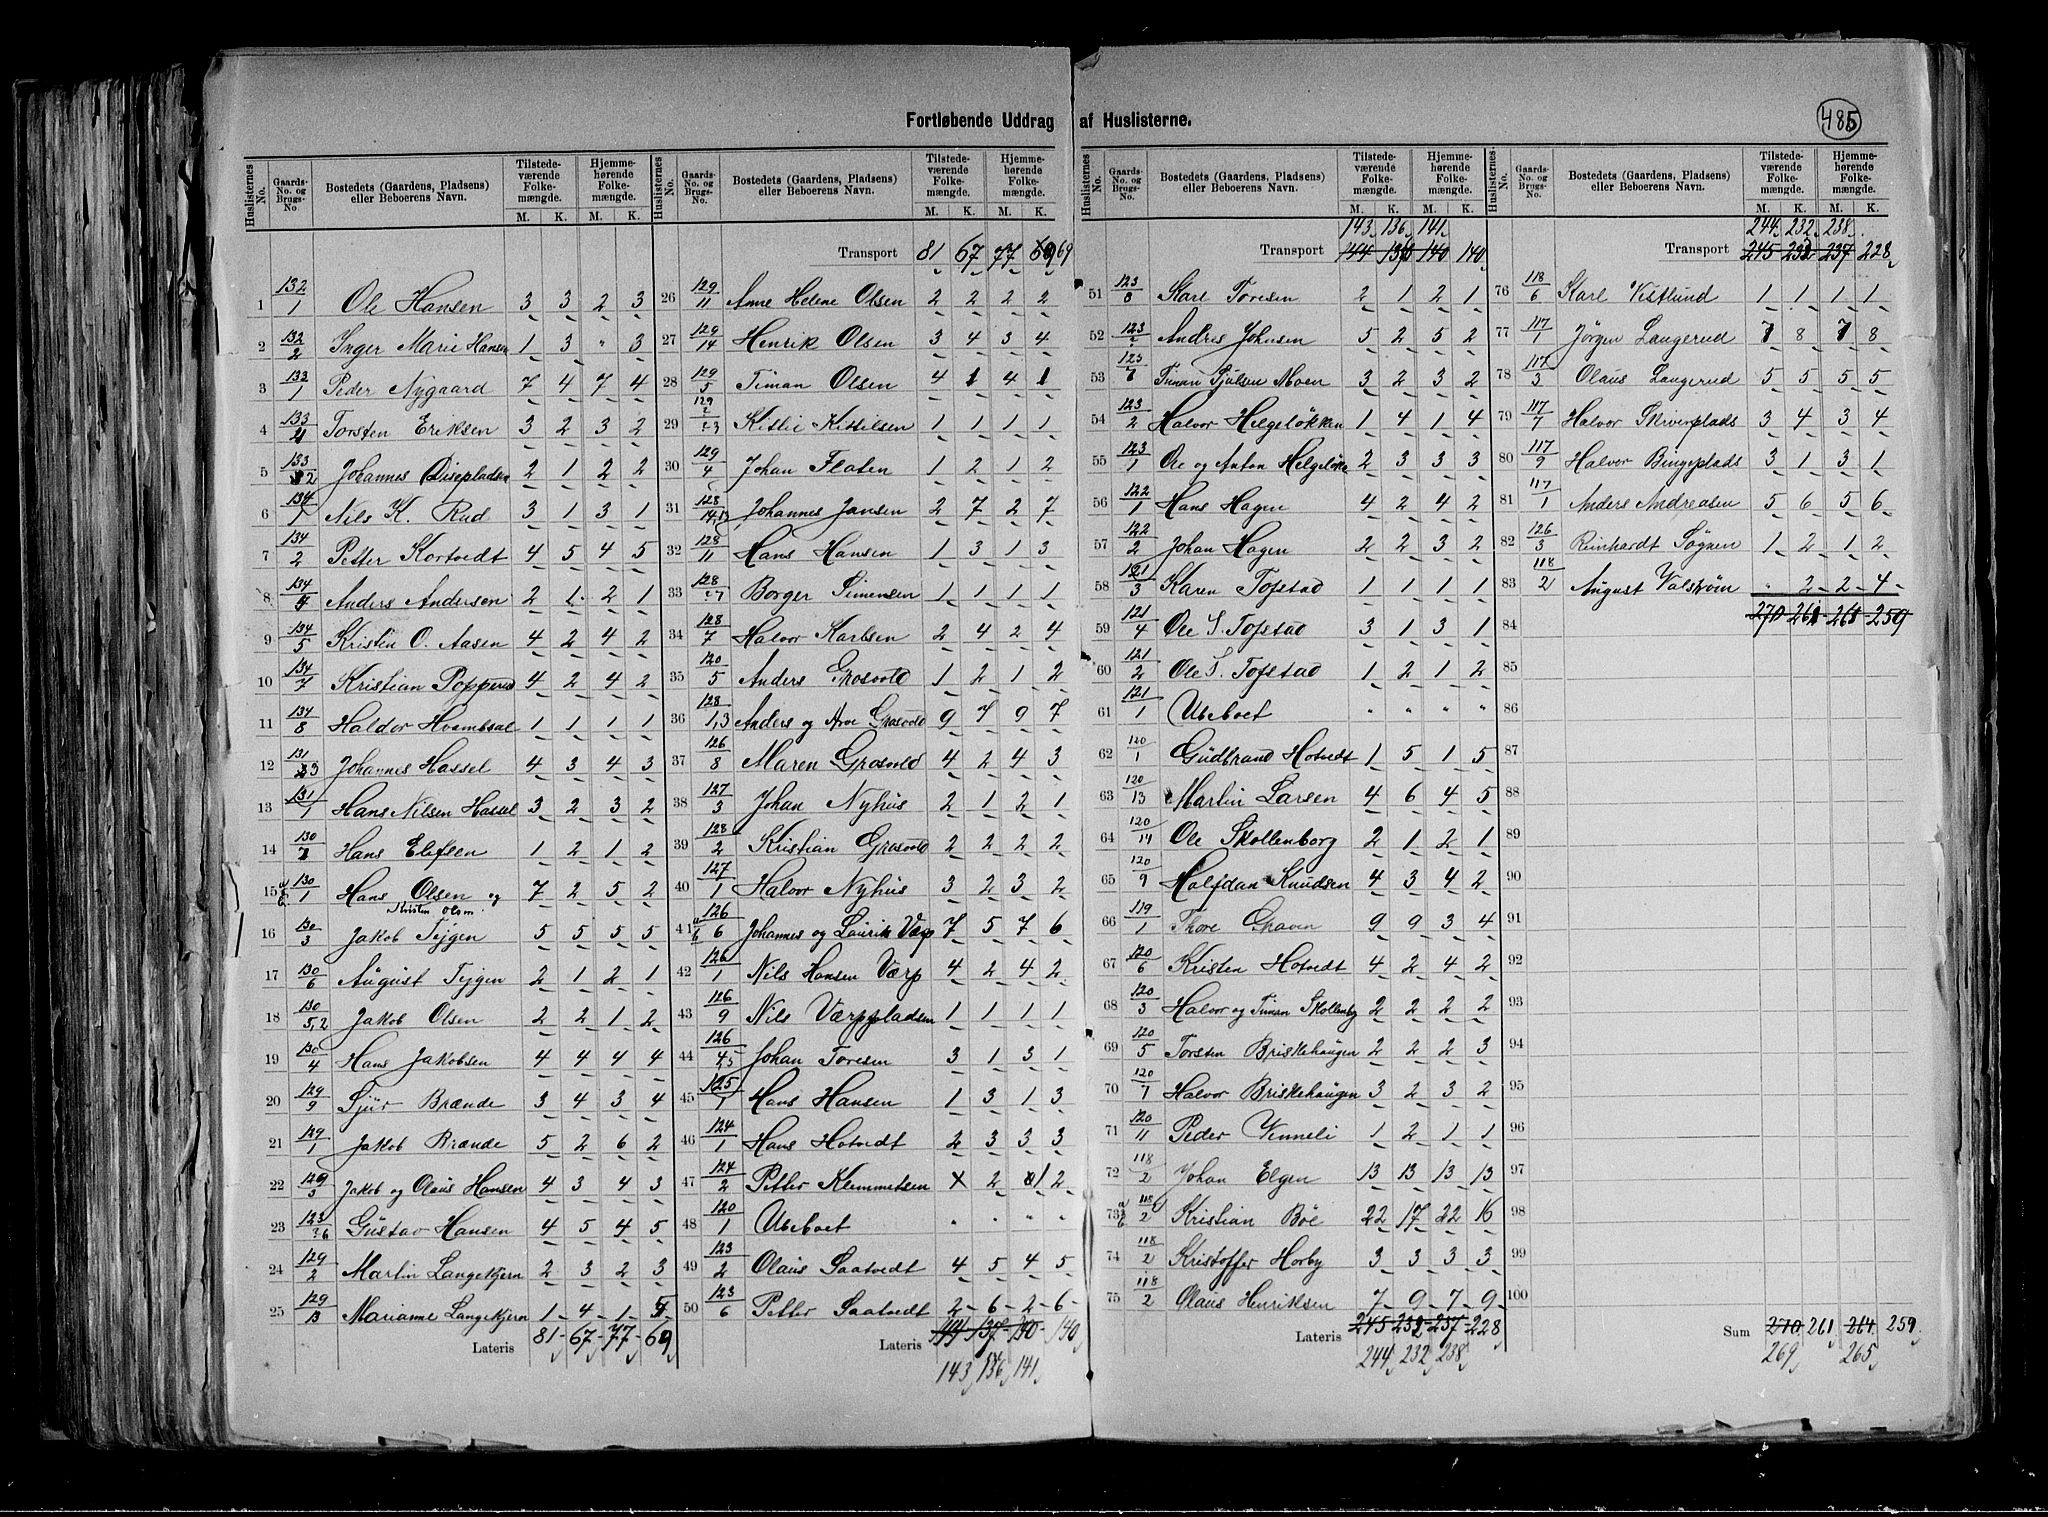 Fortløbende Uddrag af Huslisterne.
485
Huslisternes No. Gaards-No. og Brugs-No. Bostedets (Gaardens, Pladsens) eller Beboerens Navn. Tilstede-værende Folke-mængde. Hjemme-hørende Folke-mængde. M. K. M. K.
1 132/1 Ole Hansen 3 3 2 3
2 132/2 Inger Marie Hansen 1 3 " 3
3 133/1 Peder Nygaard 7 4 7 4
4 133/4 Torsten Eriksen 3 2 3 2
5 133/2 Johannes Disepladsen 2 1 2 2
6 134/1 Nils K. Rud 3 1 3 1
7 134/2 Petter Kortvedt 4 5 4 5
8 134/4 Anders Andersen 2 1 2 1
9 134/5 Kristin O. Aasen 4 2 4 2
10 134/7 Kristian Popperud 4 2 4 2
11 134/8 Haldor Hvambsal 1 1 1 1
12 131/3 Johannes Hassel 4 3 4 3
13 131/1 Hans Nilsen Hassel 3 2 3 2
14 130/7 Hans Elefsen 1 2 1 2
15 a b 130/1 Hans Olsen og 7 2 5 2
Kristen Olsen.
16 130/3 Jakob Tejgen 5 5 5 5
17 130/6 August Tejgen 2 1 2 1
18 130/5,2 Jakob Olsen 2 2 1 2
19 130/4 Hans Jakobsen 4 4 4 4
20 129/9 Sjur Brænde 3 4 3 4
21 129/1 Jakob Brænde 5 2 6 2
22 129/3 Jakob og Olaus Hansen 4 3 4 3
23 123/6 Gustav Hansen 4 5 4 5
24 129/2 Martin Langekjern 2 3 2 3
25 129/13 Marianne Langekjern 1 4 1 5
Lateris 81 67 77 69
Huslisternes No. Gaards-No. og Brugs-No. Bostedets (Gaardens, Pladsens) eller Beboerens Navn. Tilstede-værende Folke-mængde. Hjemme-hørende Folke-mængde. M. K. M. K.
Transport 81 67 77 69
26 129/11 Anne Helene Olsen 2 2 2 2
27 129/14 Henrik Olsen 3 4 3 4
28 129/5 Timan Olsen 4 1 4 1
29 129 Kittil Kittilsen 1 1 1 1
30 129/4 Johan Flaten 1 2 1 2
31 128/14,13 Johannes Jansen 2 7 2 7
32 128/11 Hans Hansen 1 3 1 3
33 128/7 Borger Simensen 1 1 1 1
34 128/7 Halvor Karlsen 2 4 2 4
35 120/5 Anders Grosvold 1 2 1 2
36 128/1,3 Anders og Arve Grosvold 9 7 9 7
37 126/8 Maren Grosvold 4 2 4 3
38 127/3 Johan Nyhus 2 1 2 1
39 128/2 Kristian Grosvold 2 2 2 2
40 127/1 Halvor Nyhus 3 2 3 2
41 a b 126/6 Johannes og Laurik Værp 7 5 7 6
42 126/1 Nils Hansen Værp 4 2 4 2
43 126/9 Nils Værppladsen 1 1 1 1
44 126/4,5 Johan Toresen 3 1 3 1
45 125/1 Hans Hansen 1 3 1 3
46 124/1 Hans Hotvedt 2 3 3 3
47 124/2 Petter Klemmetsen x 2 1 2
48 120/1 Ubeboet " " " "
49 123/2 Olaus Saatvedt 4 5 4 5
50 123/6 Petter Saatvedt 2 6 2 6
Lateris 144 137 140 140
143 136 141
Huslisternes No. Gaards-No. og Brugs-No. Bostedets (Gaardens, Pladsens) eller Beboerens Navn. Tilstede-værende Folke-mængde. Hjemme-hørende Folke-mængde. M. K. M. K.
143 136 141
Transport 144 136 140 140
51 123/8 Karl Toresen 2 1 2 1
52 123 Andres Johnsen 5 2 5 2
53 123/7 Timan Sjulsen Moen 3 2 3 2
54 123/2 Halvor Helgeløkken 1 4 1 4
55 123/1 Ole og Anton Helgeløkk 2 3 3 3
56 122/1 Hans Hagen 4 2 4 2
57 122/2 Johan Hagen 2 2 3 2
58 121/3 Karen Tofstad 1 1 1 1
59 121/4 Ole S. Tofstad 3 1 3 1
60 121/2 Ole S. Tofstad 1 2 1 2
61 121/1 Ubeboet " " " "
62 120/1 Gudbrand Hotvedt 1 5 1 5
63 120/13 Martin Larsen 4 6 4 5
64 120/14 Ole Skollenborg 2 1 2 1
65 120/9 Halfdan Knudsen 4 3 4 2
66 119/1 Thore Graven 9 9 3 4
67 120/6 Kristen Hotvedt 4 2 4 2
68 120/3 Halvor og Timan Skollenbg 2 2 2 2
69 120/5 Torsten Briskehaugen 2 2 2 3
70 120/7 Halvor Briskehaugen 3 2 3 2
71 120/11 Peder Vinneli 1 2 1 1
72 118/2 Johan Elgen 13 13 13 13
73 a b 118/2 Kristian Bøe 22 17 22 16
74 118/2 Kristoffer Horby 3 3 3 3
75 118/2 Olaus Henriksen 7 9 7 9
Lateris 245 232 237 228
244 232 238
Huslisternes No. Gaards-No. og Brugs-No. Bostedets (Gaardens, Pladsens) eller Beboerens Navn. Tilstede-værende Folke-mængde. Hjemme-hørende Folke-mængde. M. K. M. K.
244 232 238
Transport 245 232 237 228
76 118/6 Karl Vistlund 1 1 1 1
77 117/1 Jörgen Langerud 7 8 7 8
78 117/3 Olaus Langerud 5 5 5 5
79 117/7 Halvor Skriverplads 3 4 3 4
80 117/9 Halvor Bingeplads 3 1 3 1
81 117/1 Anders Andreasen 5 6 5 6
82 126/3 Reinhardt Søgnen 1 2 1 2
83 118/2 August Valstrøm " 2 2 4
84 270 261 261 259
85
86
87
88
89
90
91
92
93
94
95
96
97
98
99
100
Sum 270 261 264 259
269 265